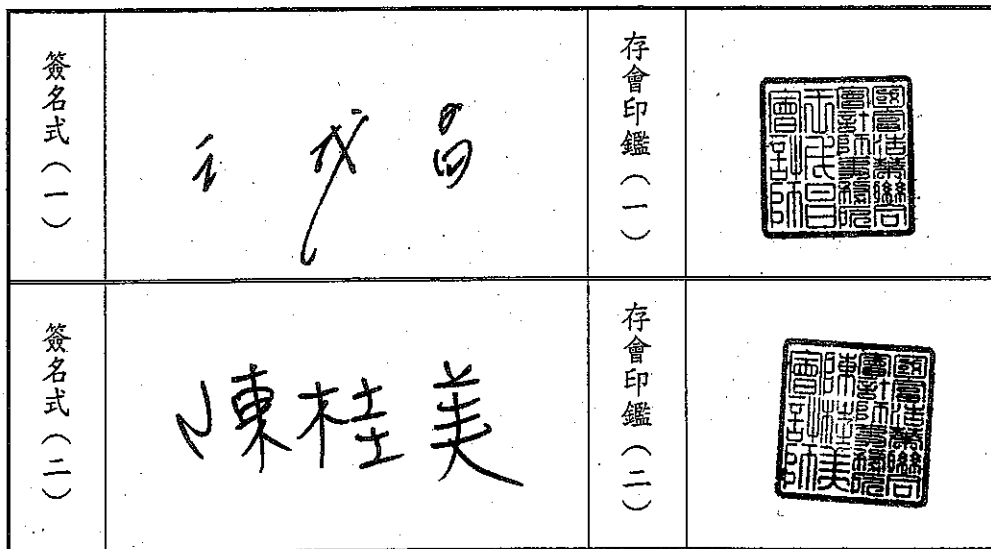 簽名式(一)
王戊昌
存會印鑑(一)
國富浩華聯合
會計師事務所
王戊昌
會計師
簽名式(二)
陳桂美
存會印鑑(二)
國富浩華聯合
會計師事務所
陳桂美
會計師